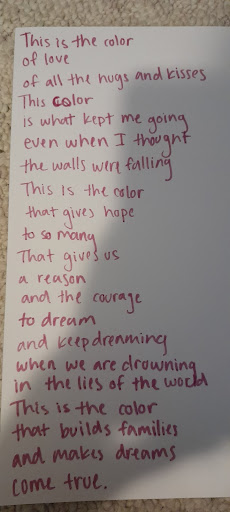 This is the color
of love
of all the hugs and kisses
This color
is what kept me going
even when I thought
the walls were falling
This is the color
that gives hope
to so many
That gives us
a reason
and the courage
to dream
and keep dreaming
when we are drowning
in the lies of the world
This is the color
that builds families
and makes dreams
come true.